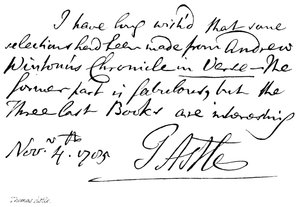 I have long wish'd that some
selections had been made from Andrew
Wintoun's Chronicle in Verse - The
former part is fabulous, but the
Three last Books are interesting
Nov.r 4.th 1795
TAstle
Thomas Astle